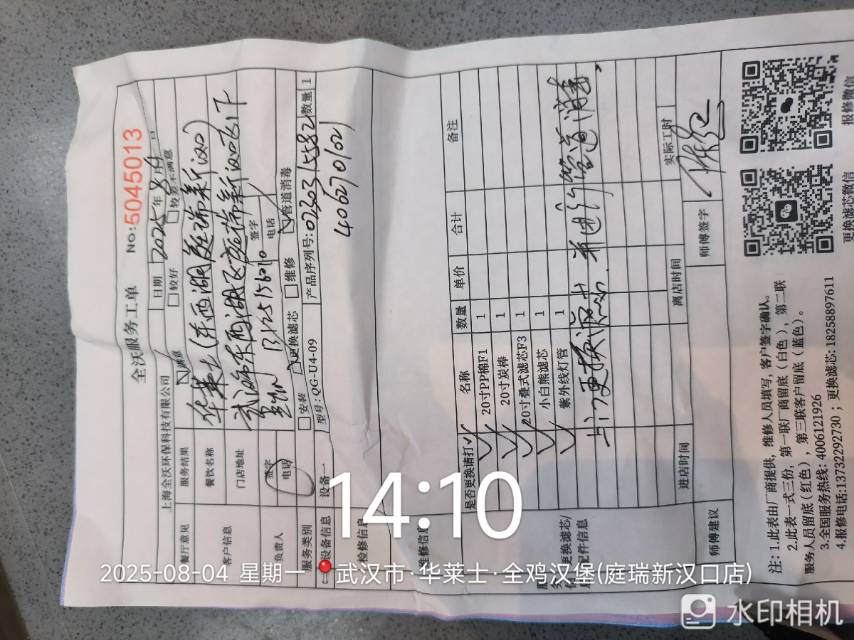 全沃服务工单
NO:5045013
上海全沃环保科技有限公司
日期 2025年8月4
餐厅意见 服务结果 满意 较好 较差 不满意
客户信息 餐饮名称 华莱士(东西湖庭瑞新汉口)
门店地址
负责人 签字 电话 13125156010 签字 电话
服务类别 安装 更换滤芯 维修 管道消毒
设备信息 设备一 型号:QG-U4-09 产品序列号: 数量 1
检修信息
维修信息
是否更换请打✓ 名称 数量 单价 合计 备注
✓ 20寸PP棉F1 1
✓ 20寸炭棒 1
✓ 20寸叠式滤芯F3 1
✓ 小白熊滤芯 1
✓ 紫外线灯管 1
更换滤芯/配件信息
上门更换滤芯,并进行管道消毒,
进店时间 离店时间 实际工时
师傅建议 师傅签字
注: 1.此表由厂商提供,维修人员填写,客户签字确认。
2.此表一式三份,第一联厂商留底(白色),第二联
服务人员留底(红色),第三联客户留底(蓝色)。
3.全国服务热线:4006121926
4.报修电话:13732292730;更换滤芯:18258897611
更换滤芯微信 报修微信
14:10
2025-08-04 星期一 武汉市·华莱士·全鸡汉堡(庭瑞新汉口店)
水印相机